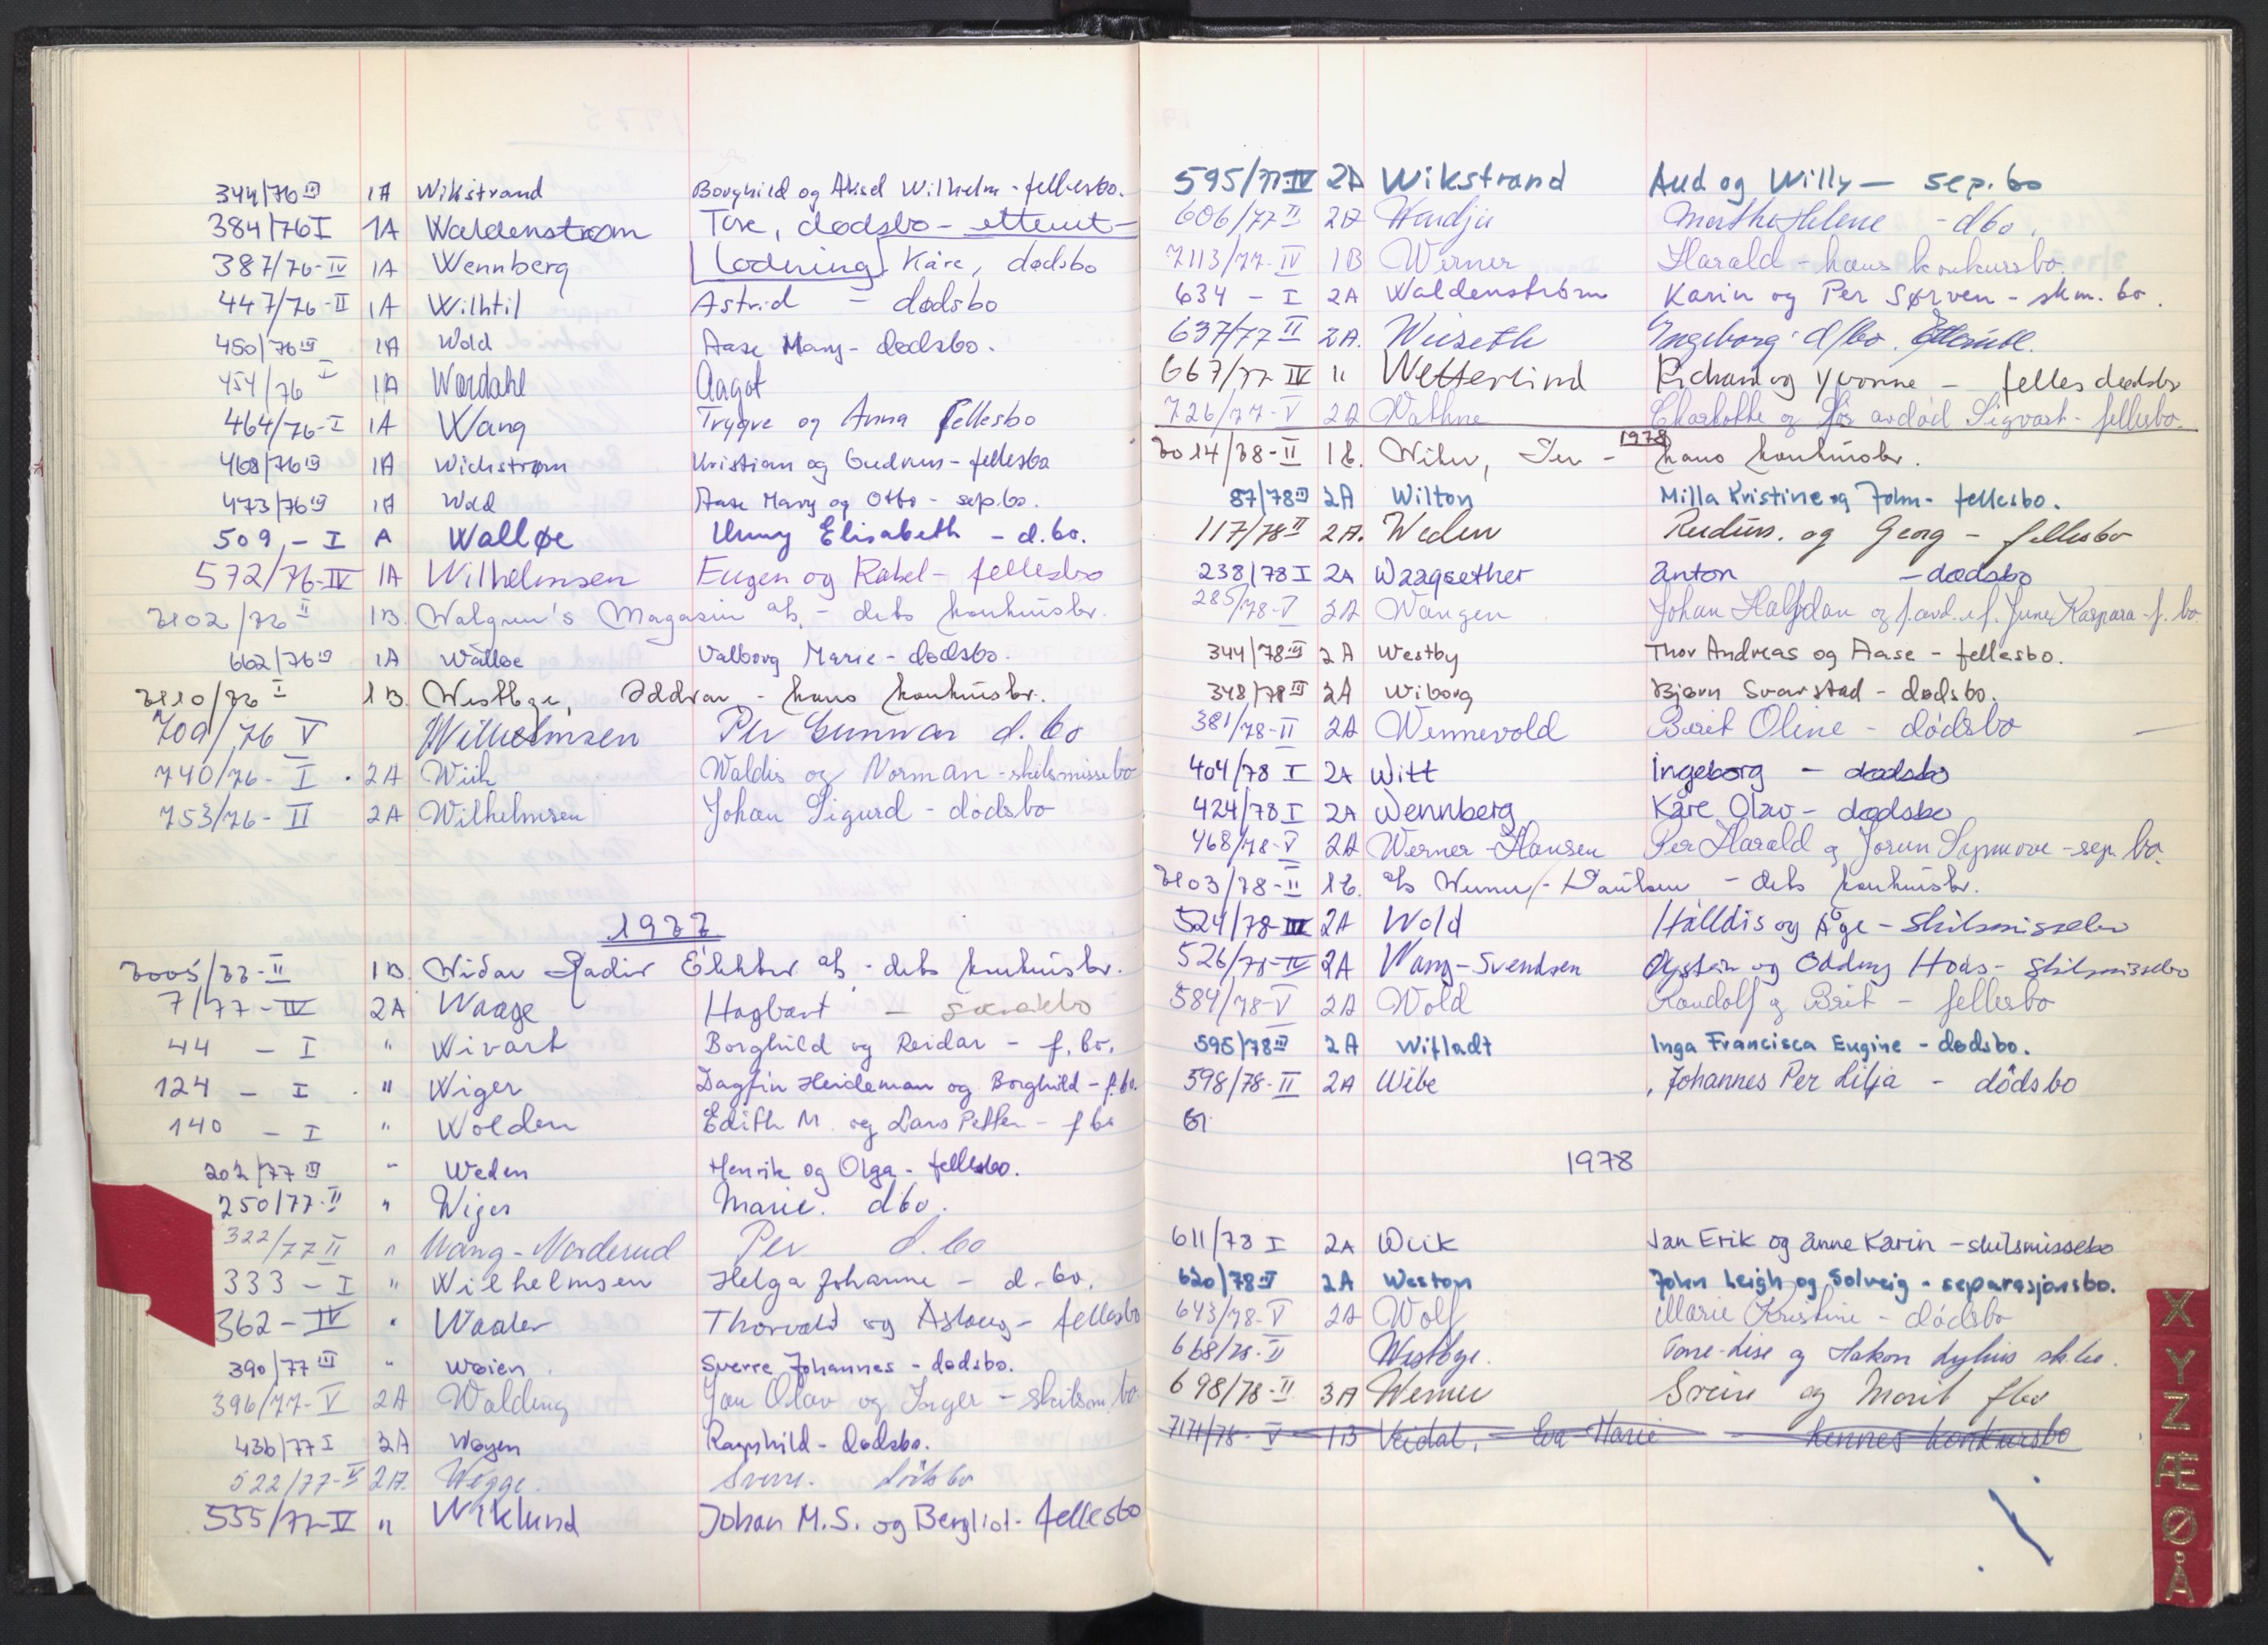 344/76 III 1A Wikstrand Borghild og Aksel Wilhelm - fellesbo.
384/76 I 1A Waldenstrøm Tore, dødsbo - etterut-
387/76-IV 1A Wennberg [lodning] Kåre, dødsbo
447/76-II 1A Wilhtil Astrid = dødsbo
450/76 III 1A Wold Aase Mary - dødsbo.
454/76 I 1A Wærdahl Aagot
464/76-I 1A Wang Trygve og Anna fellesbo
468/76 III 1A Wichstrøm Kristian og Gudrun - fellesbo
473/76 III 1A Wold Aase Mary og Otto - sep.bo.
509 - I A Walløe Unny Elisabeth - d.bo.
572/76-IV 1A Wilhelmsen Eugen og Rakel - fellesbo
7102/76 II 1B. Walgren's Magasin a/s, - dets konkursbr.
662/76 III 1A Walløe Valborg Marie - dødsbo.
7110/76 I 1B. Westbye, Oddvar - hans konkursbr.
709/76 V Wilhelmsen Per Gunnar d. bo
740/76- I 2A Wiik Waldis og Norman - skilsmissebo
753/76- II 2A Wilhelmsen Johan Sigurd - dødsbo
1977
7005/77-II 1B. Widar Radio Elektro a/s - dets konkursbr.
7/77-IV 2A Waage Hagbart -
44 - I " Wivart Borghild og Reidar - f. bo.
124 - I " Wiger Dagfin Heideman og Borghild - f.bo.
140 - I " Wolden Edith M. og Lars Petter - f bo
202/77 III " Weden Henrik og Olga - fellesbo.
250/77-II " Wiger Marie. dbo.
322/77 II " Wang-Norderud Per d. bo
333 - I " Wilhelmsen Helga Johanne - d. bo.
362 - IV " Waaler Thorvald og Aslaug - fellesbo
390/77 III " Wøien Sverre Johannes - dødsbo.
396/77-V 2A Walding Jan Olav og Inger - skilsm. bo
436/77 I 2A Wøyen Ragnhild - dødsbo.
522/77-II 2A. Wegge. Sverre.
555/77-IV " Wiklund Johan M.S. og Bergliot - fellesbo
595/77-IV 2A Wikstrand Aud og Willy - sep. bo
606/77 II 2A Marthe Helene - dbo.
7113/77-IV 1B Werner Harald - hans konkursbo.
634 - I 2A Waldenstrøm Karin og Per Sørven - skm. bo.
637/77 II 2A. Wiiseth Ingeborg d/bo.
667/77 IV " Wetterlind Richard og Yvonne - felles dødsbo
726/77-V 2A Wathne Charlotte og før avdød Sigvart - fellesbo.
1978
7014/78-II 1B. Per - hans konkursbr.
87/78 III 2A Wilton Milla Kristine og John - fellesbo.
117/78 II 2A. Weden og Georg - fellesbo
238/78 I 2A Waagsether Anton - dødsbo
285/78-V 2A Wangen Johan Halfdan og f.avd. e.f. June Kaspara - f. bo.
344/78 III 2A Westby Thor Andreas og Aase - fellesbo.
348/78 III 2A Wiborg Bjørn Svarstad - dødsbo.
381/78-II 2A Wennevold Berit Oline - dødsbo
404/78 I 2A Witt Ingeborg - dødsbo
424/78 I 2A Wennberg Kåre Olav - dødsbo
468/78-V 2A Werner-Hansen Per Harald og Jorun Synnøve - sep. bo.
7103/78-II 1B. a/s Werner - Paulsen - dets konkursbr.
524/78-III 2A Wold Halldis og Åge - skilsmissebo
526/78-IV 2A Wang-Svendsen Øystein og Oddny Hoås - skilsmissebo
584/78-V 2A Wold Randolf og Berit - fellesbo
595/78 III 2A Wifladt Inga Francisca Eugine - dødsbo.
598/78-II 2A Wibe Johannes Per Lilja - dødsbo
1978
611/78 I 2A Wiik Jan Erik og Anne Karin - skilsmissebo
620/78 III 2A Weston John Leigh og Solveig - separasjonsbo.
643/78-V 2A Wolf Marie Kristine - dødsbo
668/78-II Westbye. Tone-Lise og Hakon
698/78-II 3A Werner Sverre og Marit fbo
7171/78- V 1B Veidal, Eva Marie - hennes konkursbo
X
Y
Z
Æ
Ø
Å